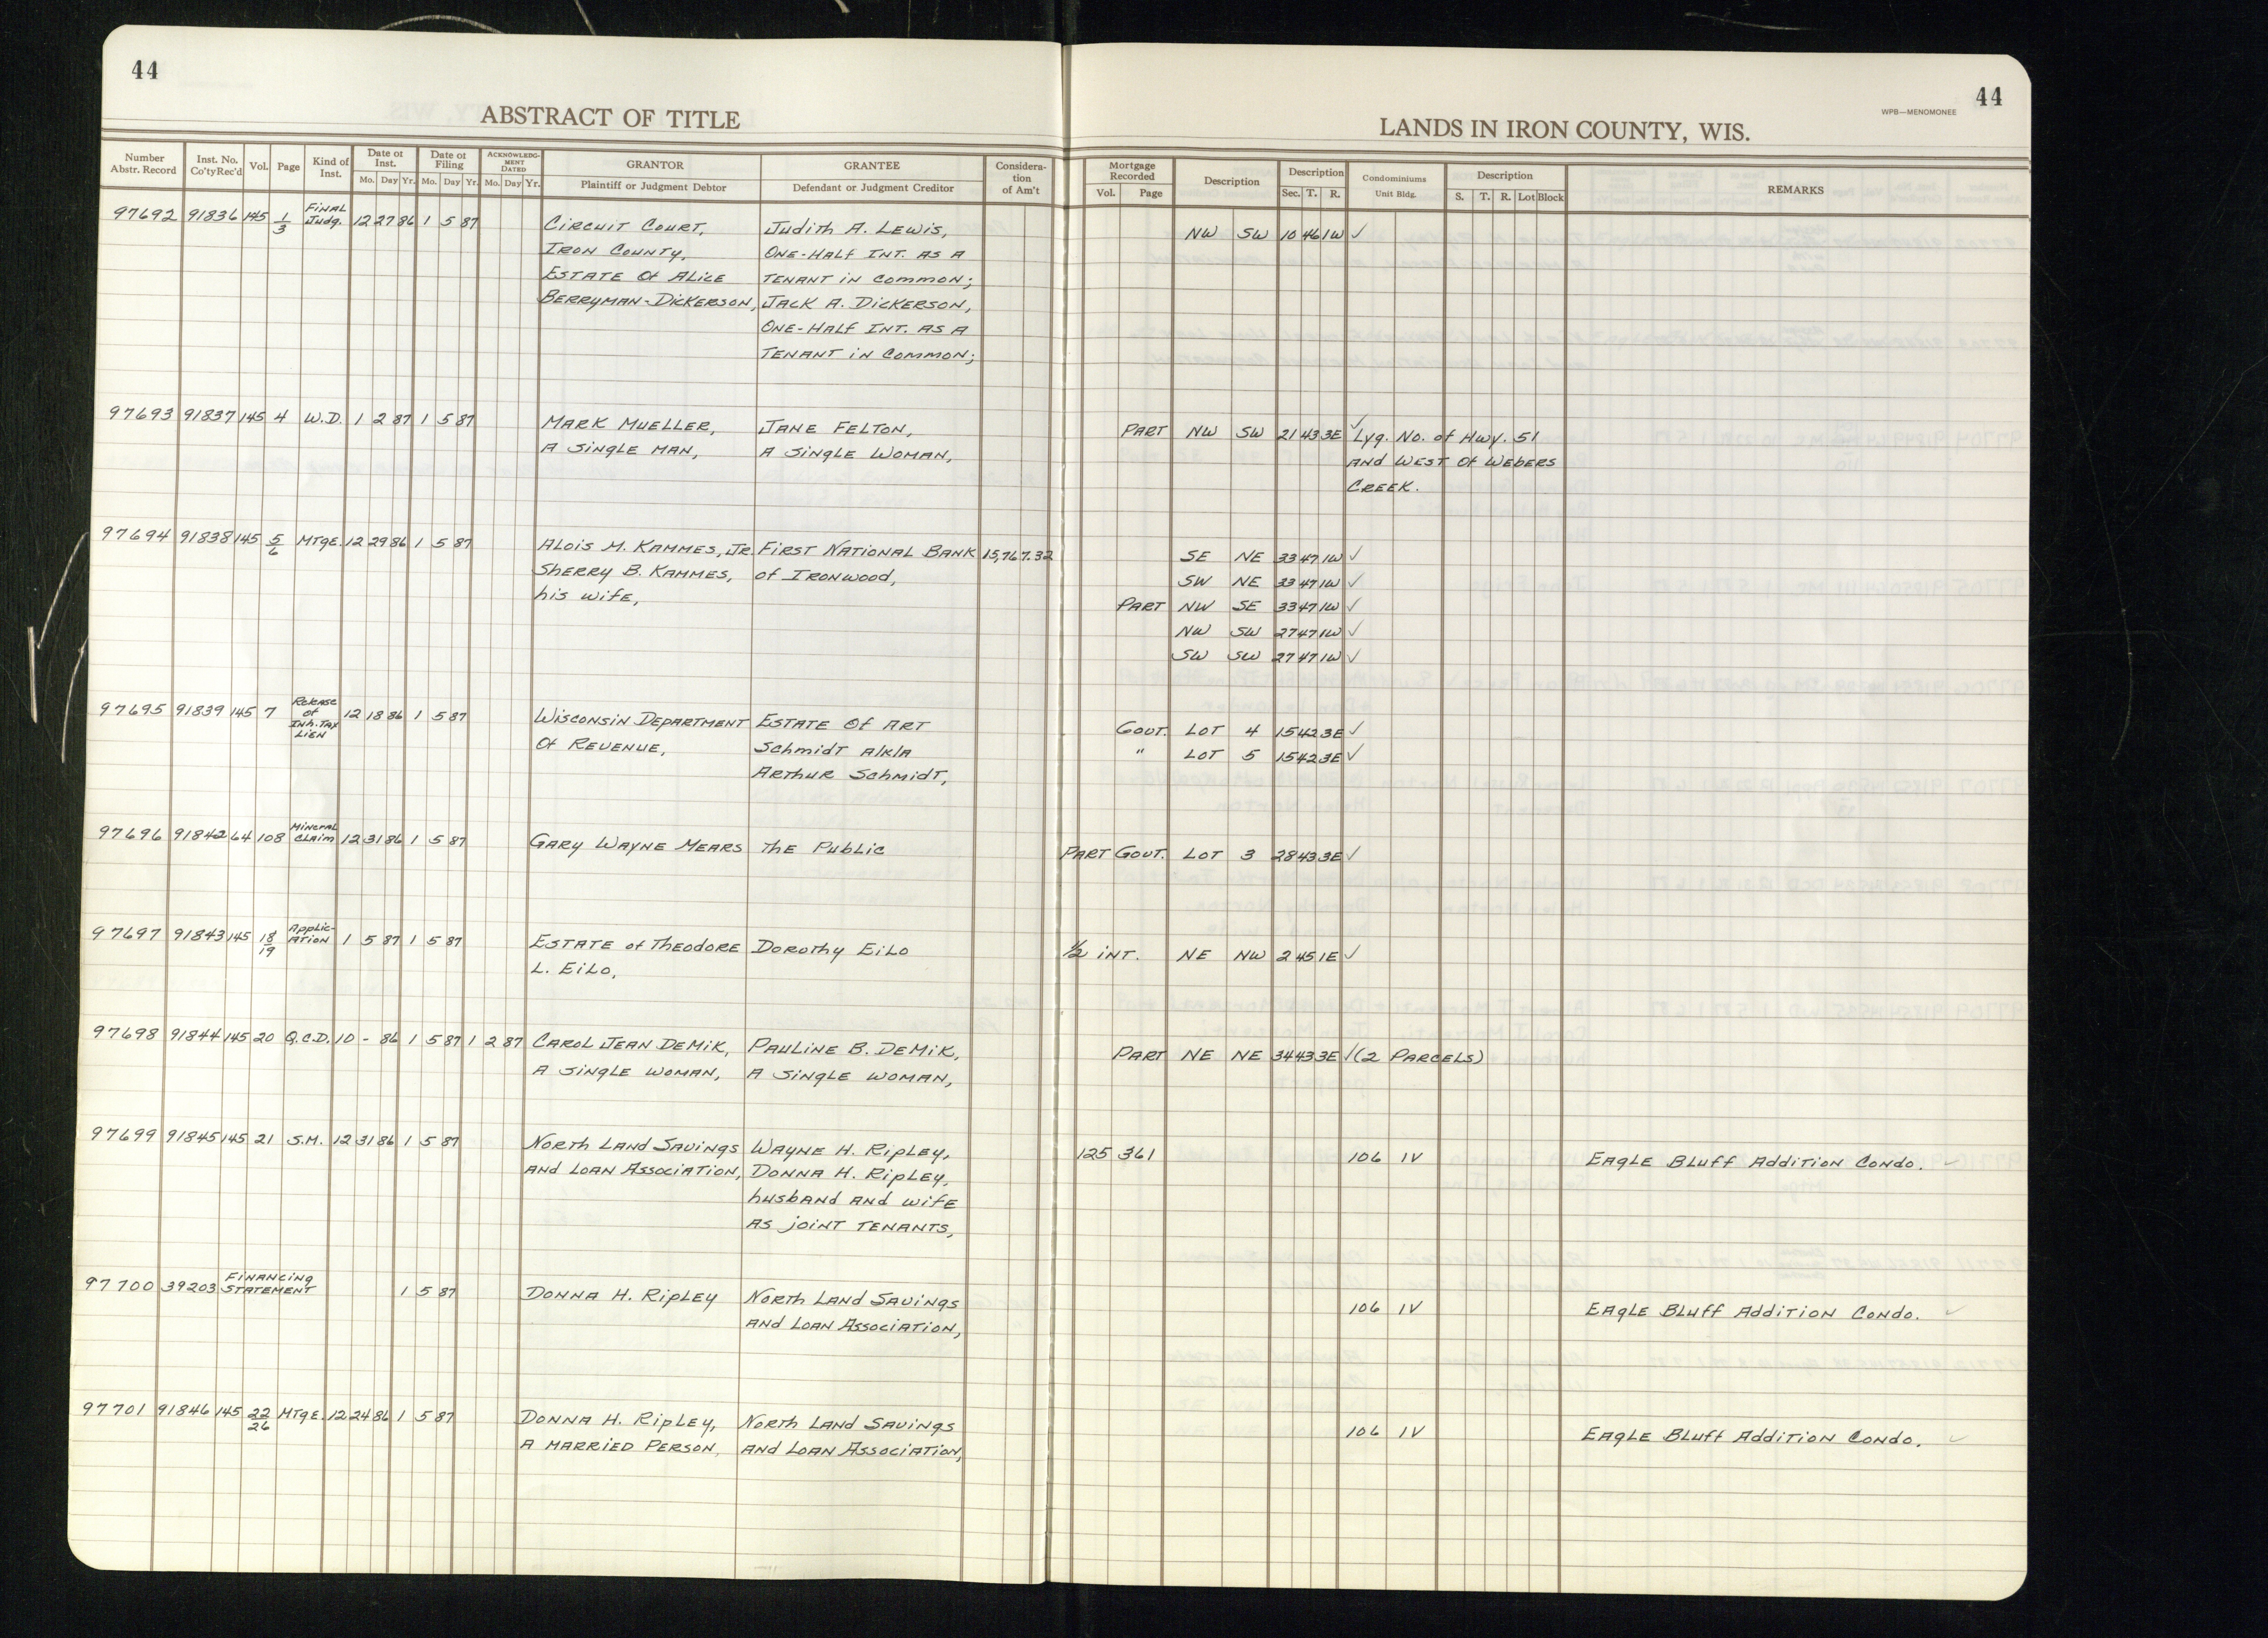 44
ABSTRACT OF TITLE
Number Abstr. Record Inst. No. Co'ty Rec'd Vol. Page Kind of Inst. Date of Inst. Mo. Day Yr. Date of Filing Mo. Day Yr. ACKNOWLEDGMENT DATED Mo. Day Yr. GRANTOR Plaintiff or Judgment Debtor GRANTEE Defendant or Judgment Creditor Consideration of Am't
44
WPB—MENOMONEE
LANDS IN IRON COUNTY, WIS.
Mortgage Recorded Vol. Page Description Description Sec. T. R. Condominiums Unit Bldg. Description S. T. R. Lot Block REMARKS
97692 91836 145 1/3 Final Judg. 12 27 86 1 5 87 Circuit Court, Judith A. Lewis, NW SW 10 46 1W ✓
Iron County, One-Half Int. as a
Estate of Alice Tenant in Common;
Berryman-Dickerson, Jack A. Dickerson,
One-Half Int. as a
Tenant in Common;
97693 91837 145 4 W.D. 1 2 87 1 5 87 Mark Mueller, Jane Felton, Part NW SW 21 43 3E ✓ Lyg. No. of Hwy. 51
a single man, a single woman, and West of Webers
Creek.
97694 91838 145 5/6 Mtge. 12 29 86 1 5 87 Alois M. Kammes, Jr. First National Bank 15,767.32 SE NE 33 47 1W ✓
Sherry B. Kammes, of Ironwood, SW NE 33 47 1W ✓
his wife, Part NW SE 33 47 1W ✓
NW SW 27 47 1W ✓
SW SW 27 47 1W ✓
97695 91839 145 7 Release of Inh. Tax Lien 12 18 86 1 5 87 Wisconsin Department Estate of Art Gout. Lot 4 15 42 3E ✓
of Revenue, Schmidt a/k/a " Lot 5 15 42 3E ✓
Arthur Schmidt,
97696 91842 64 108 Mineral Claim 12 31 86 1 5 87 Gary Wayne Mears the Public Part Gout. Lot 3 28 43 3E ✓
97697 91843 145 18/19 Application 1 5 87 1 5 87 Estate of Theodore Dorothy Eilo 1/2 int. NE NW 2 45 1E ✓
L. Eilo,
97698 91844 145 20 Q.C.D. 10 - 86 1 5 87 1 2 87 Carol Jean DeMik, Pauline B. DeMik, Part NE NE 34 43 3E ✓ (2 Parcels)
a single woman, a single woman,
97699 91845 145 21 S.M. 12 31 86 1 5 87 North Land Savings Wayne H. Ripley, 125 361 106 IV Eagle Bluff Addition Condo. ✓
and Loan Association, Donna H. Ripley,
husband and wife
as joint tenants,
97700 39203 Financing Statement 1 5 87 Donna H. Ripley North Land Savings 106 IV Eagle Bluff Addition Condo. ✓
and Loan Association,
97701 91846 145 22/26 Mtge. 12 24 86 1 5 87 Donna H. Ripley, North Land Savings 106 IV Eagle Bluff Addition Condo. ✓
a married person, and Loan Association,